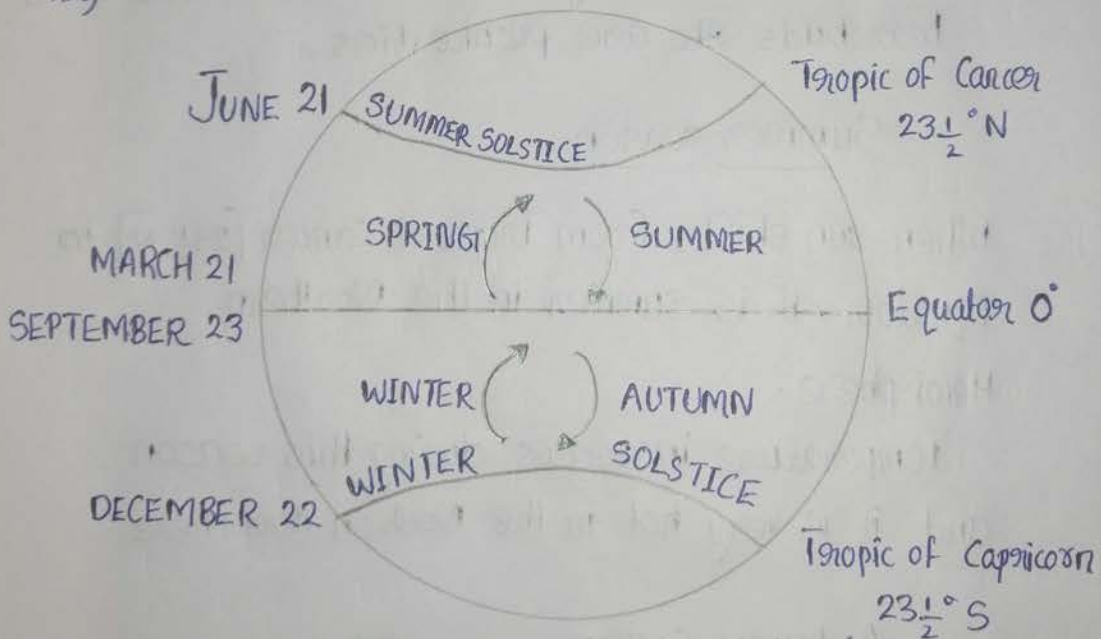 JUNE 21
SUMMER SOLSTICE
Tropic of Cancer
23 1/2° N
SPRING
SUMMER
MARCH 21
SEPTEMBER 23
Equator 0°
WINTER
AUTUMN
WINTER SOLSTICE
DECEMBER 22
Tropic of Capricorn
23 1/2° S